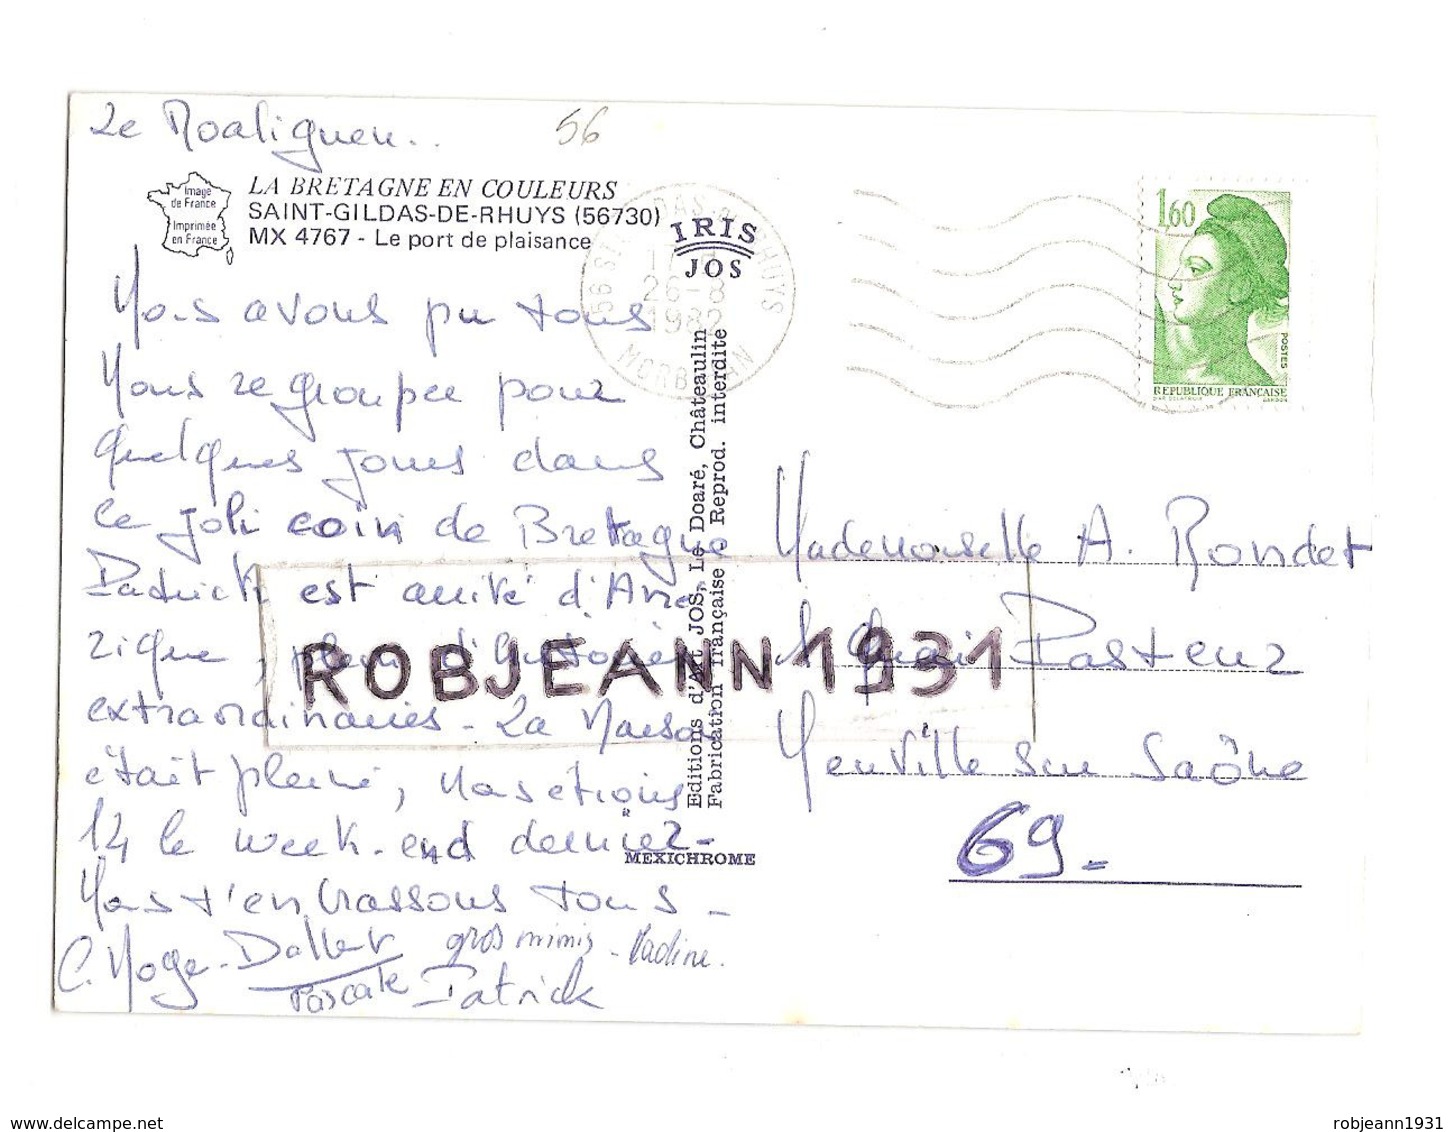 Le Roaliguen..
56
Image
de France
Imprimée
en France
LA BRETAGNE EN COULEURS
SAINT-GILDAS-DE-RHUYS (56730)
MX 4767 - Le port de plaisance
IRIS
JOS
26-8
1982
MORBIHAN
1,60
POSTES
REPUBLIQUE FRANÇAISE
Nous avons pu tous
nous regrouper pour
quelques jours dans
ce joli coin de Bretagne
Patrick est arrivé d'Amé-
rique, plein d'histoires
extraordinaires - La Maison
était pleine, nous étions
14 le week-end dernier -
Nous t'embrassons tous -
C. Noge - Dallet gros mimis - Nadine.
Pascale Patrick
Editions d'Art JOS, Le Doaré, Châteaulin
Fabrication française - Reprod. interdite
MEXICHROME
Mademoiselle A. Rondet
Quai Pasteur
Neuville sur Saône
69 -
ROBJEANN1931
www.delcampe.net
robjeann1931